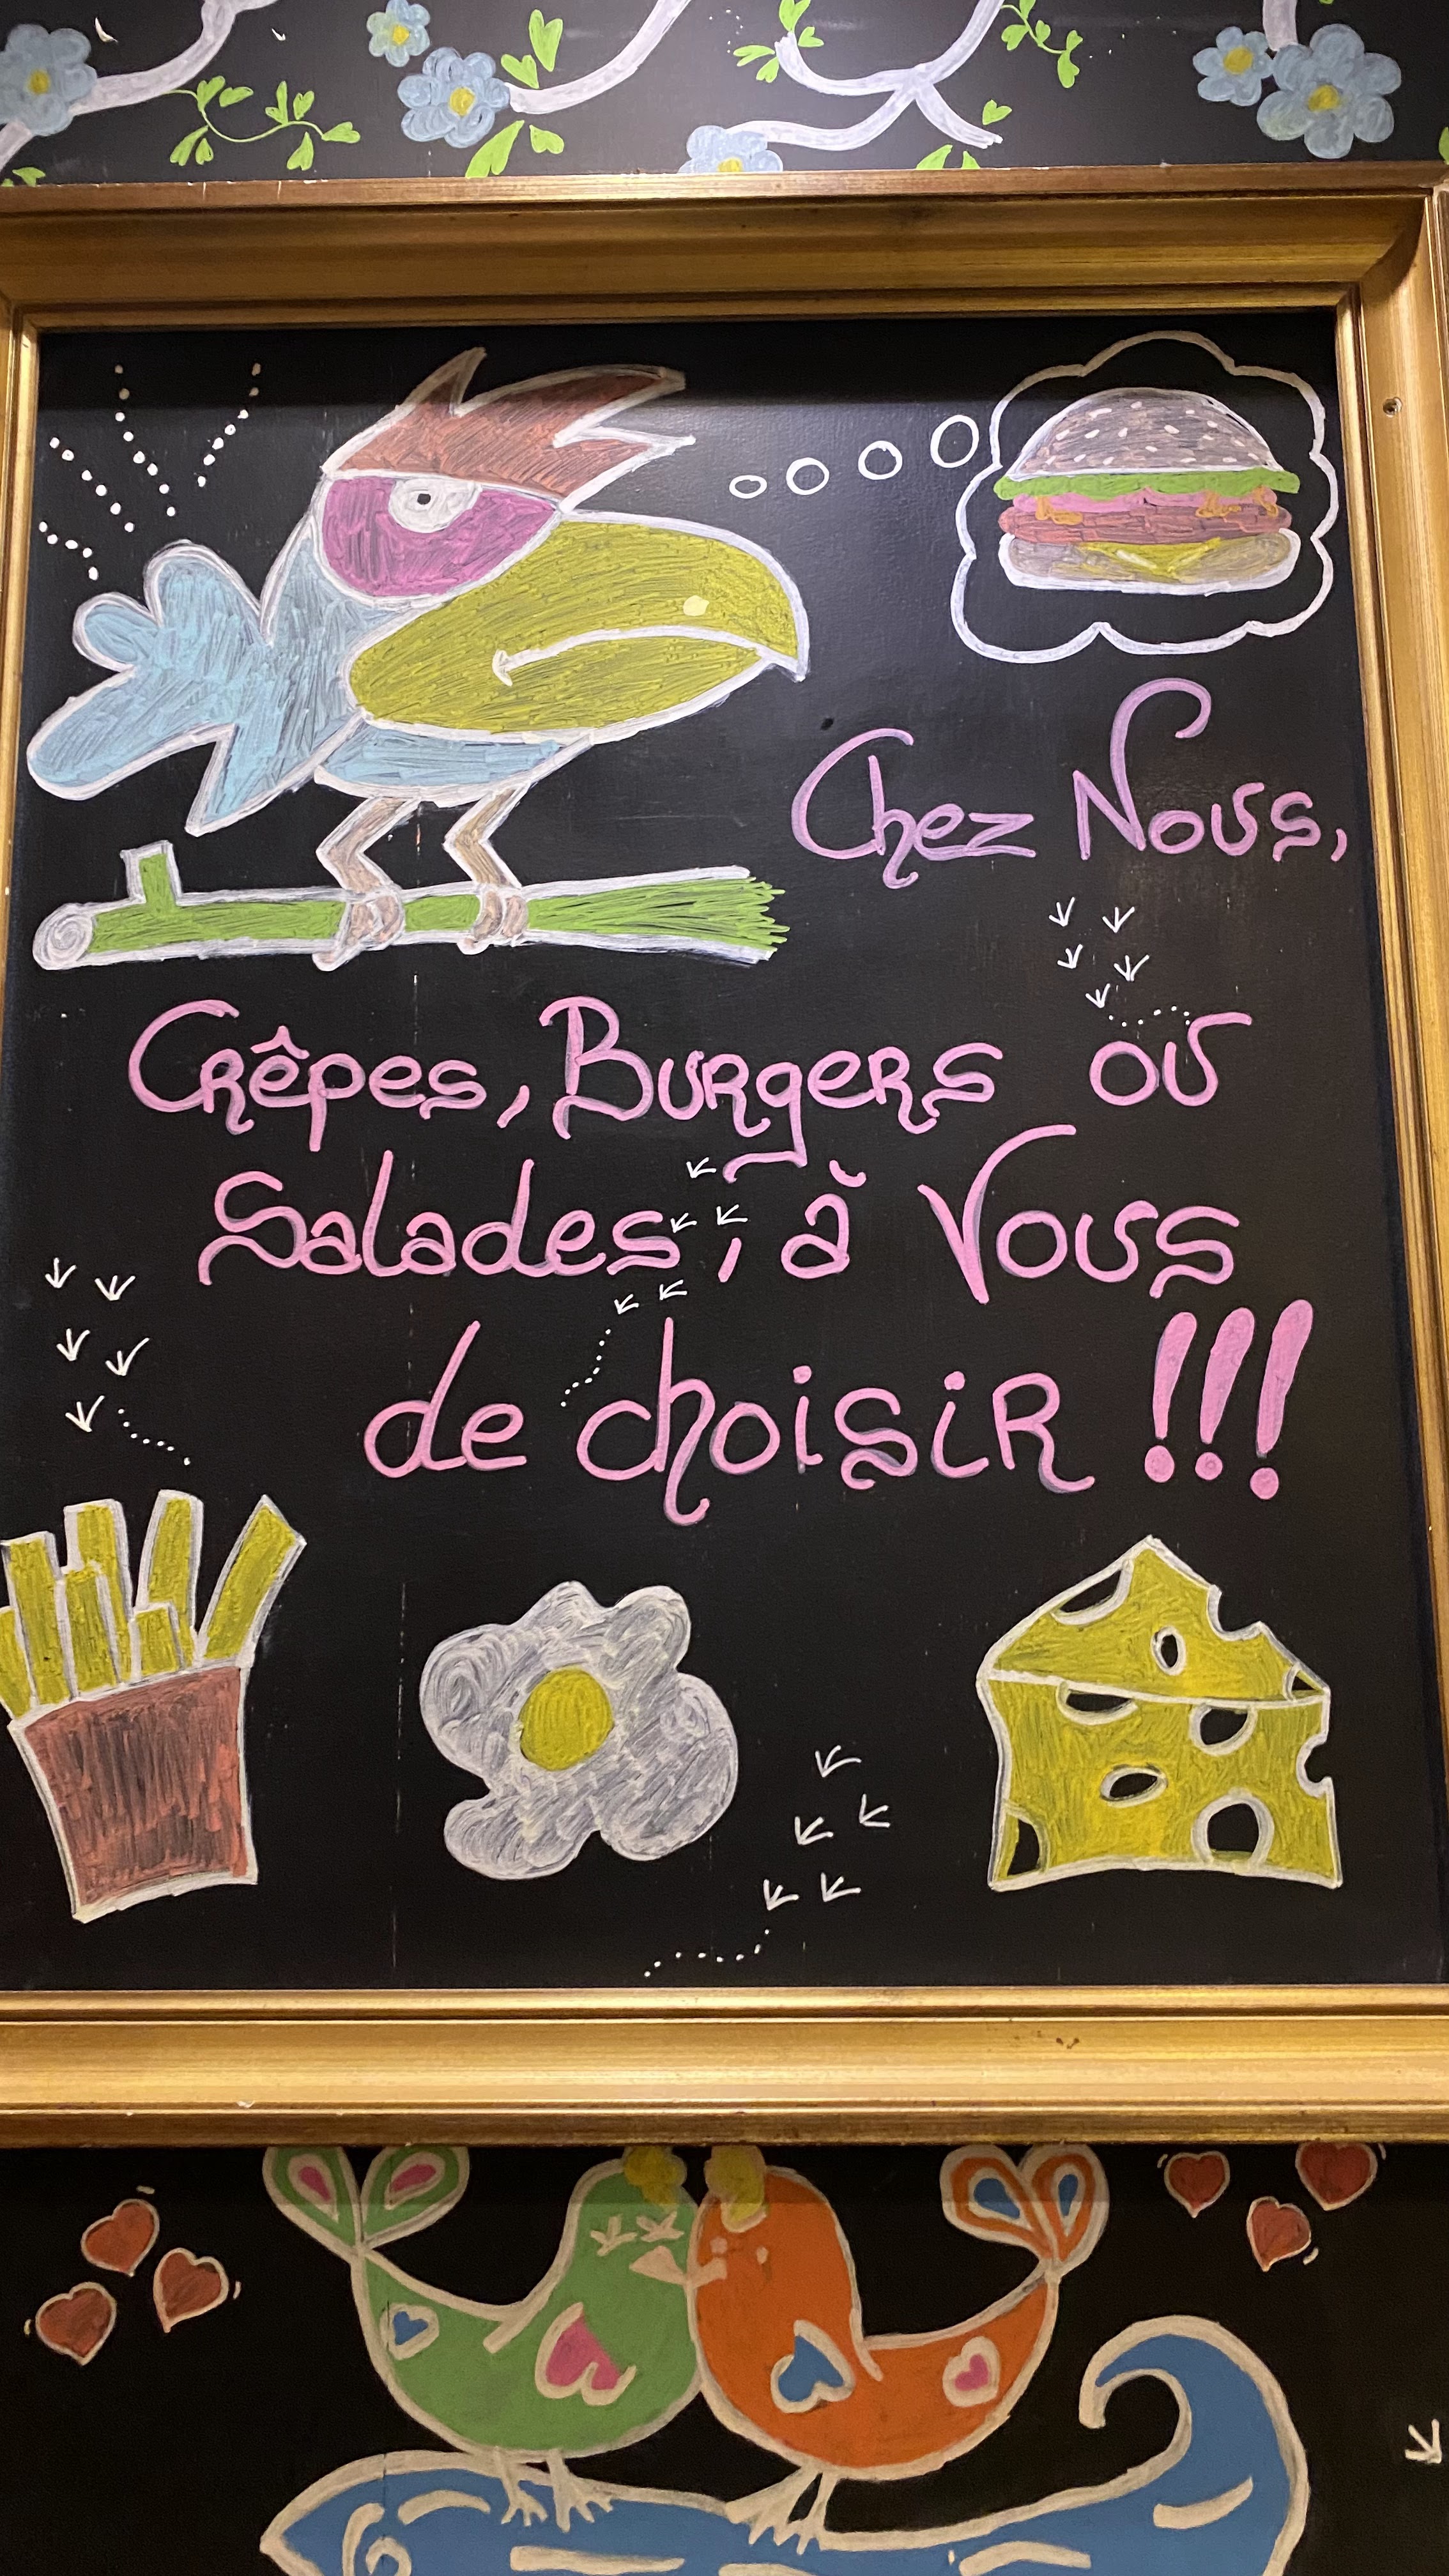 Chez Nous,
Crêpes, Burgers ou
Salades, à Vous
de choisir !!!